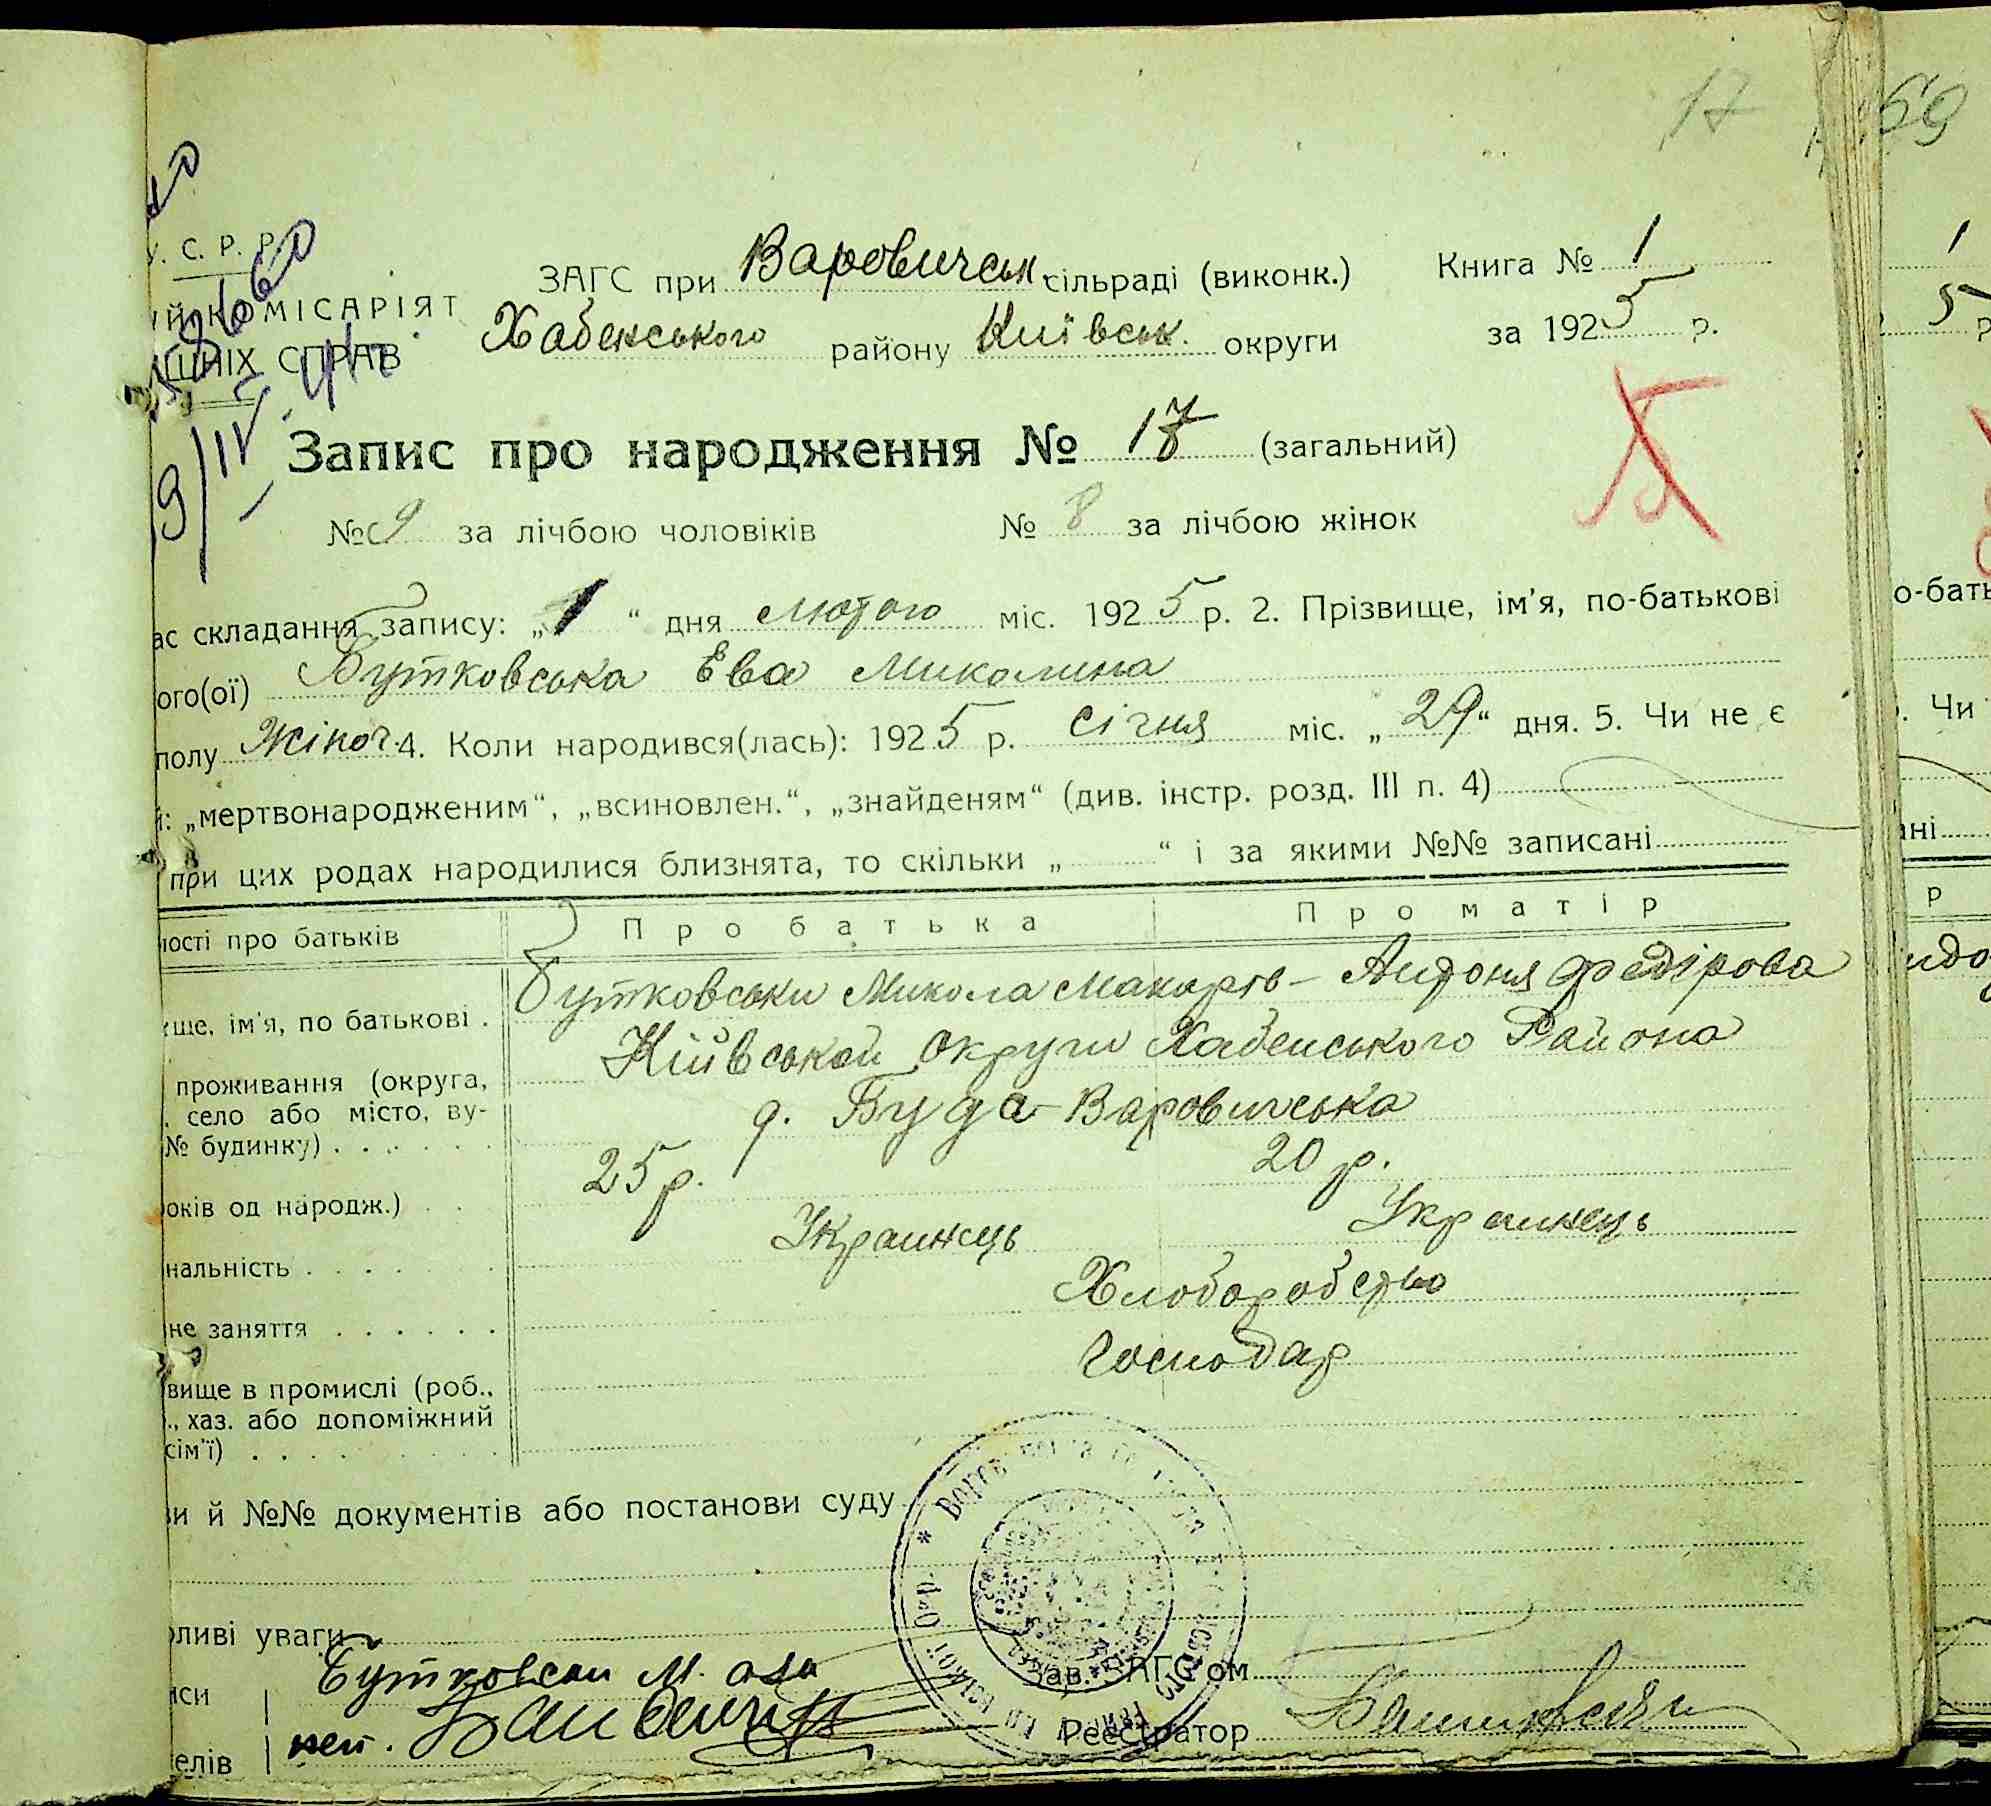 17
69
У. С. Р. Р.
ЗАГС при Варовичськ. сільраді (виконк.) Книга № 1
КОМІСАРІЯТ
Хабенського району Київськ. округи за 1925 р.
СПРАВ
9/IV
Запис про народження № 17 (загальний)
№ 9 за лічбою чоловіків № 8 за лічбою жінок
ас складання запису: „1“ дня лютого міс. 1925 р. 2. Прізвище, ім’я, по-батькові
ого(ої) Бутковська Ева Миколина
полу Жіноч. 4. Коли народився(лась): 1925 р. січня міс. „29“ дня. 5. Чи не є
: „мертвонародженим“, „всиновлен.“, „знайденям“ (див. інстр. розд. III п. 4)
при цих родах народилися близнята, то скільки „ “ і за якими №№ записані
ості про батьків Про батька Про матір
ще, ім’я, по батькові . Бутковськи Микола Макарів – Андоня Федірова
проживання (округа, Київськой Округи Хабенського Района
село або місто, ву- д. Буда-Варовичська
№ будинку) . . . . . .
оків од народж.) . . 25 р. 20 р.
нальність . . . . . . Украинець Украинець
не заняття . . . . . . Хлоборобство
Господар
вище в промислі (роб.,
., хаз. або допоміжний
сім’ї) . . . . . . . .
и й №№ документів або постанови суду
ливі уваги
Бутковськи М. а за
си Зав. ЗАГС’ом
неп.
Реєстратор
елів